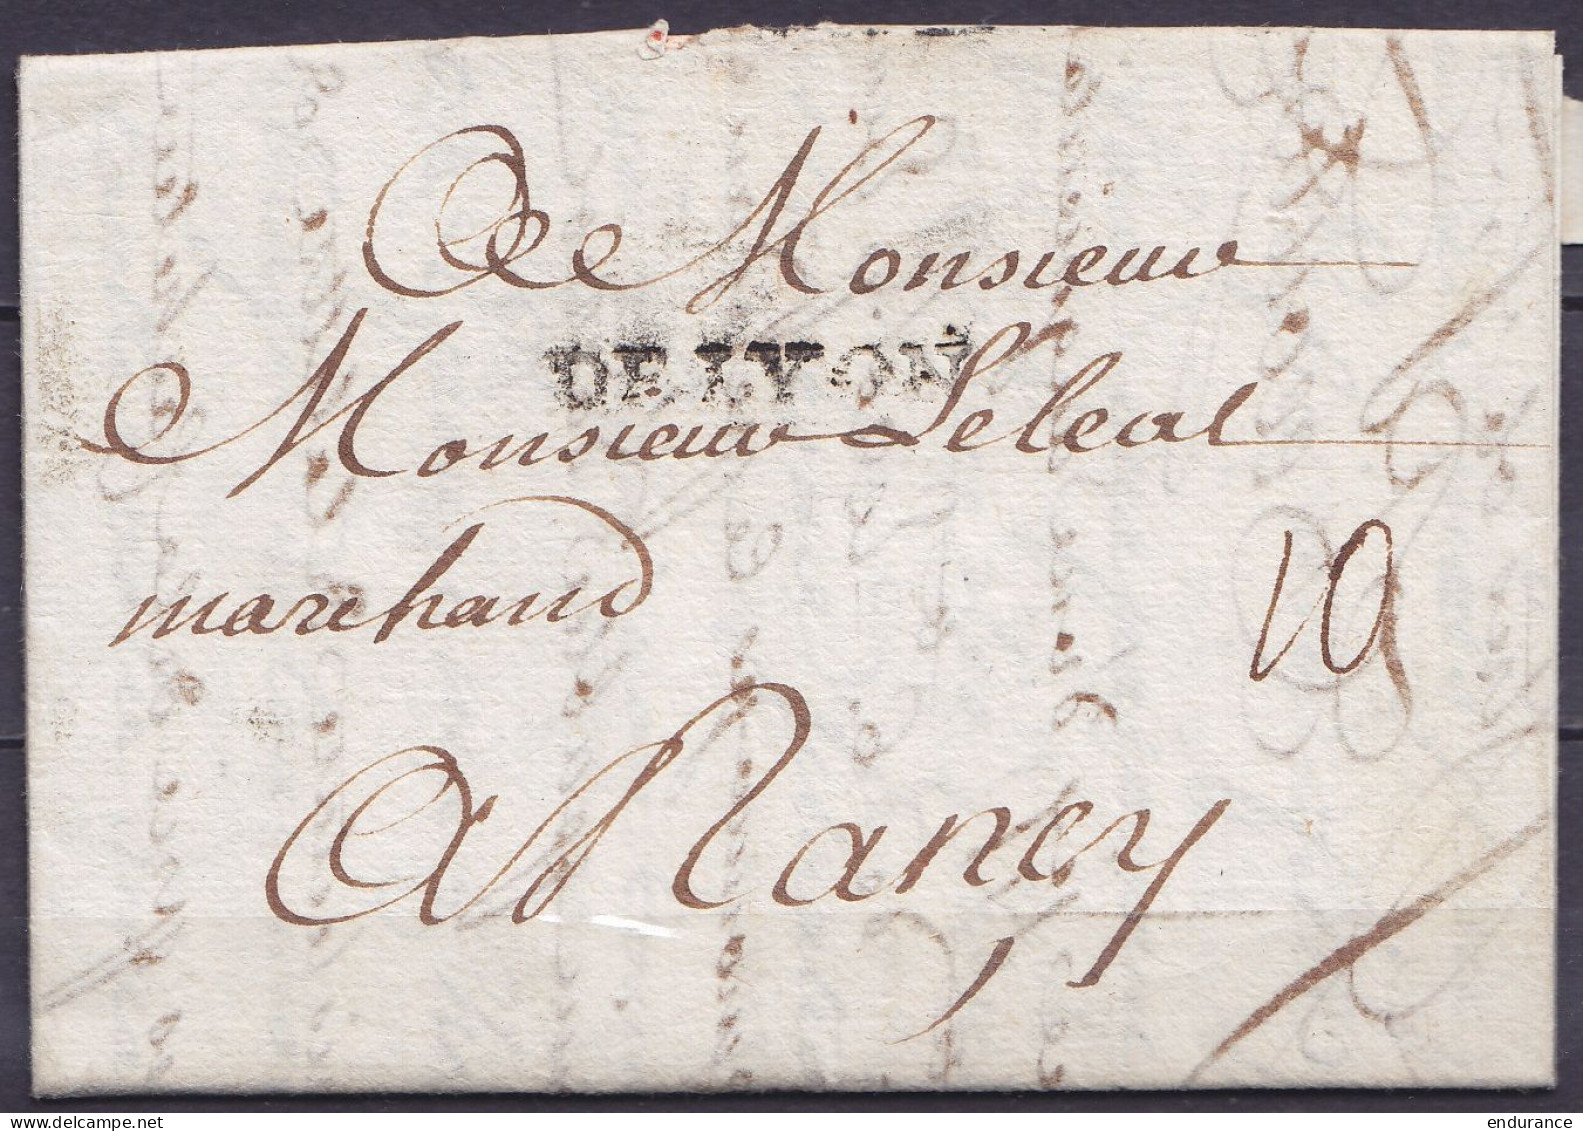 A Monsieur
DE LYON
Monsieur Leleal
marchand
10
A Nancy
www.delcampe.net
endurance